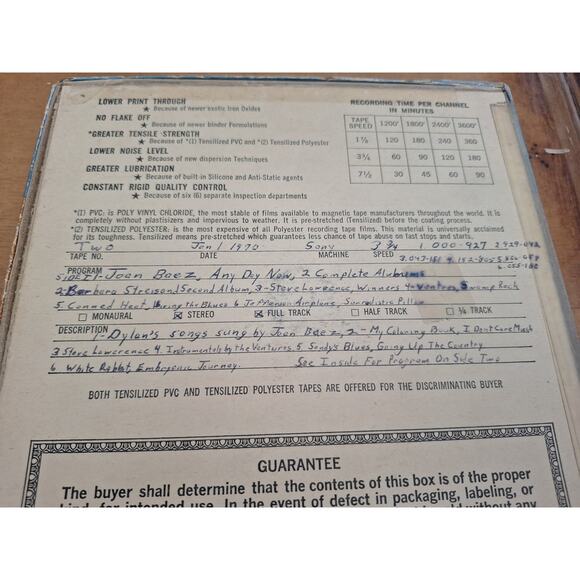 LOWER PRINT THROUGH
★ Because of newer exotic Iron Oxides
NO FLAKE OFF
★ Because of newer binder Formulations
*GREATER TENSILE STRENGTH
★ Because of *(1) Tensilized PVC and *(2) Tensilized Polyester
LOWER NOISE LEVEL
★ Because of new dispersion Techniques
GREATER LUBRICATION
★ Because of built-in Silicone and Anti-Static agents
CONSTANT RIGID QUALITY CONTROL
★ Because of six (6) separate Inspection departments
RECORDING TIME PER CHANNEL
IN MINUTES
TAPE SPEED 1200' 1800' 2400' 3600'
1⅞ 120 180 240 360
3¾ 60 90 120 180
7½ 30 45 60 90
*(1) PVC: is POLY VINYL CHLORIDE, the most stable of films available to magnetic tape manufacturers throughout the world. It is
completely without plasticizers and impervious to weather. It is pre-stretched (Tensilized) before the coating process.
*(2) TENSILIZED POLYESTER: is the most expensive of all Polyester recording tape films. This material is universally acclaimed
for its toughness. Tensilized means pre-stretched which guarantees less chance of tape abuse on fast stops and starts.
Two Jan 1 1970 Sony 3 3/4 1. 000-927
TAPE NO. DATE MACHINE SPEED
PROGRAM SIDE #1- Joan Baez, Any Day Now, 2 Complete Alabums
2-Barbara Streisand Second Album, 3-Steve Lawrence, Winners 4-Ventres, Swamp Rock
5. Canned Heat, Living the Blues 6 Jefferson Airplane, Surrealistic Pillow
☐ MONAURAL ☒ STEREO ☒ FULL TRACK ☐ HALF TRACK ☐ ¼ TRACK
DESCRIPTION 1-Dylan's songs sung by Joan Baez, 2-My Coloring Book, I Dont Care Much
3 Steve Lawerence 4. Instrumentals by the Ventures. 5. Sandy's Blues, Going Up The Country
6 White Rabbit, Embryonic Journey. See Inside For Program On Side Two
BOTH TENSILIZED PVC AND TENSILIZED POLYESTER TAPES ARE OFFERED FOR THE DISCRIMINATING BUYER
GUARANTEE
The buyer shall determine that the contents of this box is of the proper
kind, for intended use. In the event of defect in packaging, labeling, or